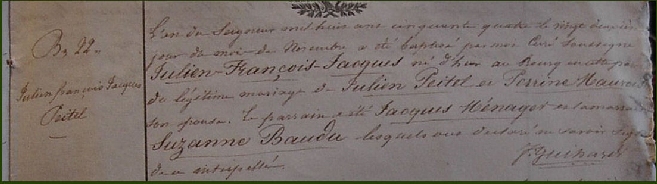 Bs 22.
Julien françois Jacques
Peitel
L'an du Seigneur mil huit cent cinquante quatre le vingt deuxième
jour du mois de Novembre a été baptisé par moi Curé soussigné
Julien-François-Jacques né d'hier au Bourg
du légitime mariage de Julien Peitel et Perrine
son épouse. Le parrain a été Jacques Ménager et la marraine
Suzanne Baudu lesquels ont déclaré ne savoir signer
de ce interpellés.